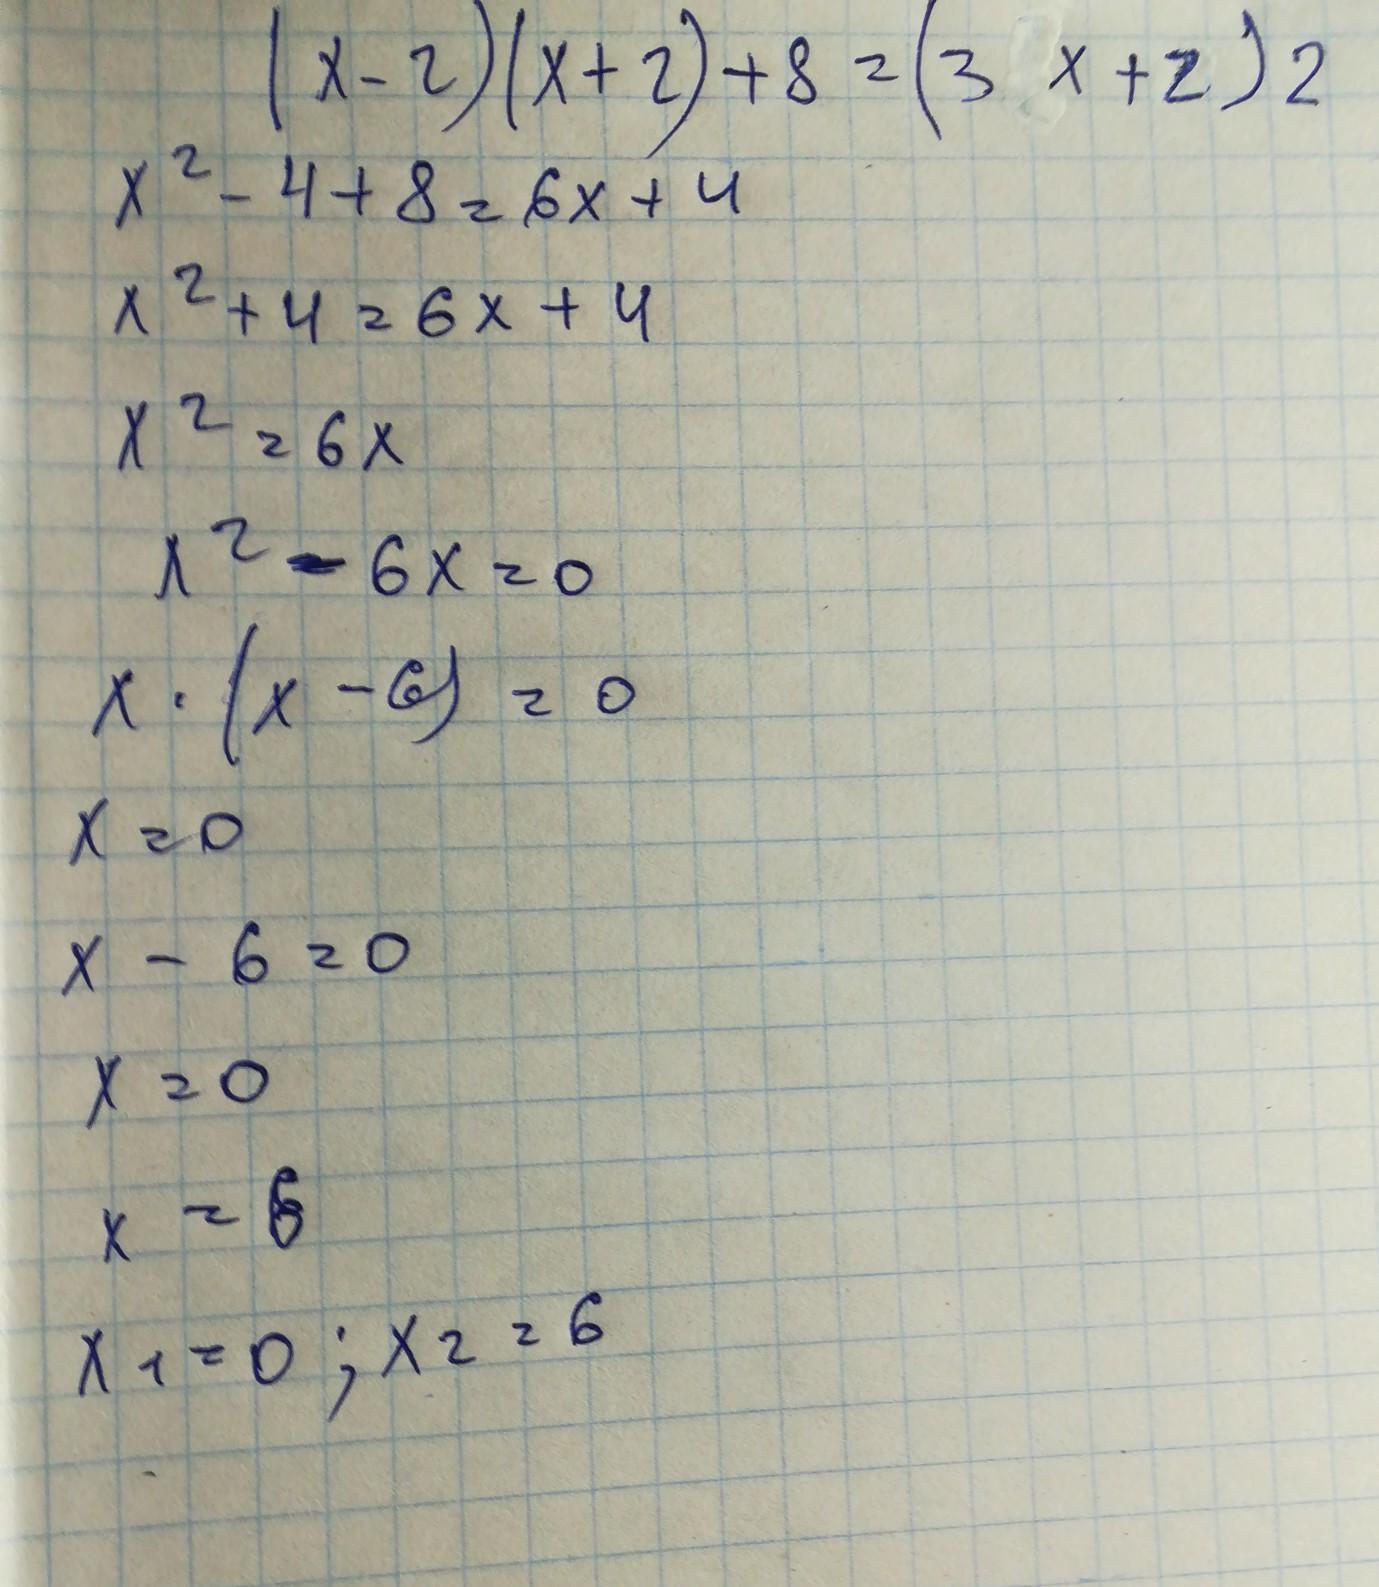 (x-2)(x+2)+8=(3x+2)2
x²-4+8=6x+4
x²+4=6x+4
x²=6x
x²-6x=0
x·(x-6)=0
x=0
x-6=0
x=0
x=6
x₁=0; x₂=6